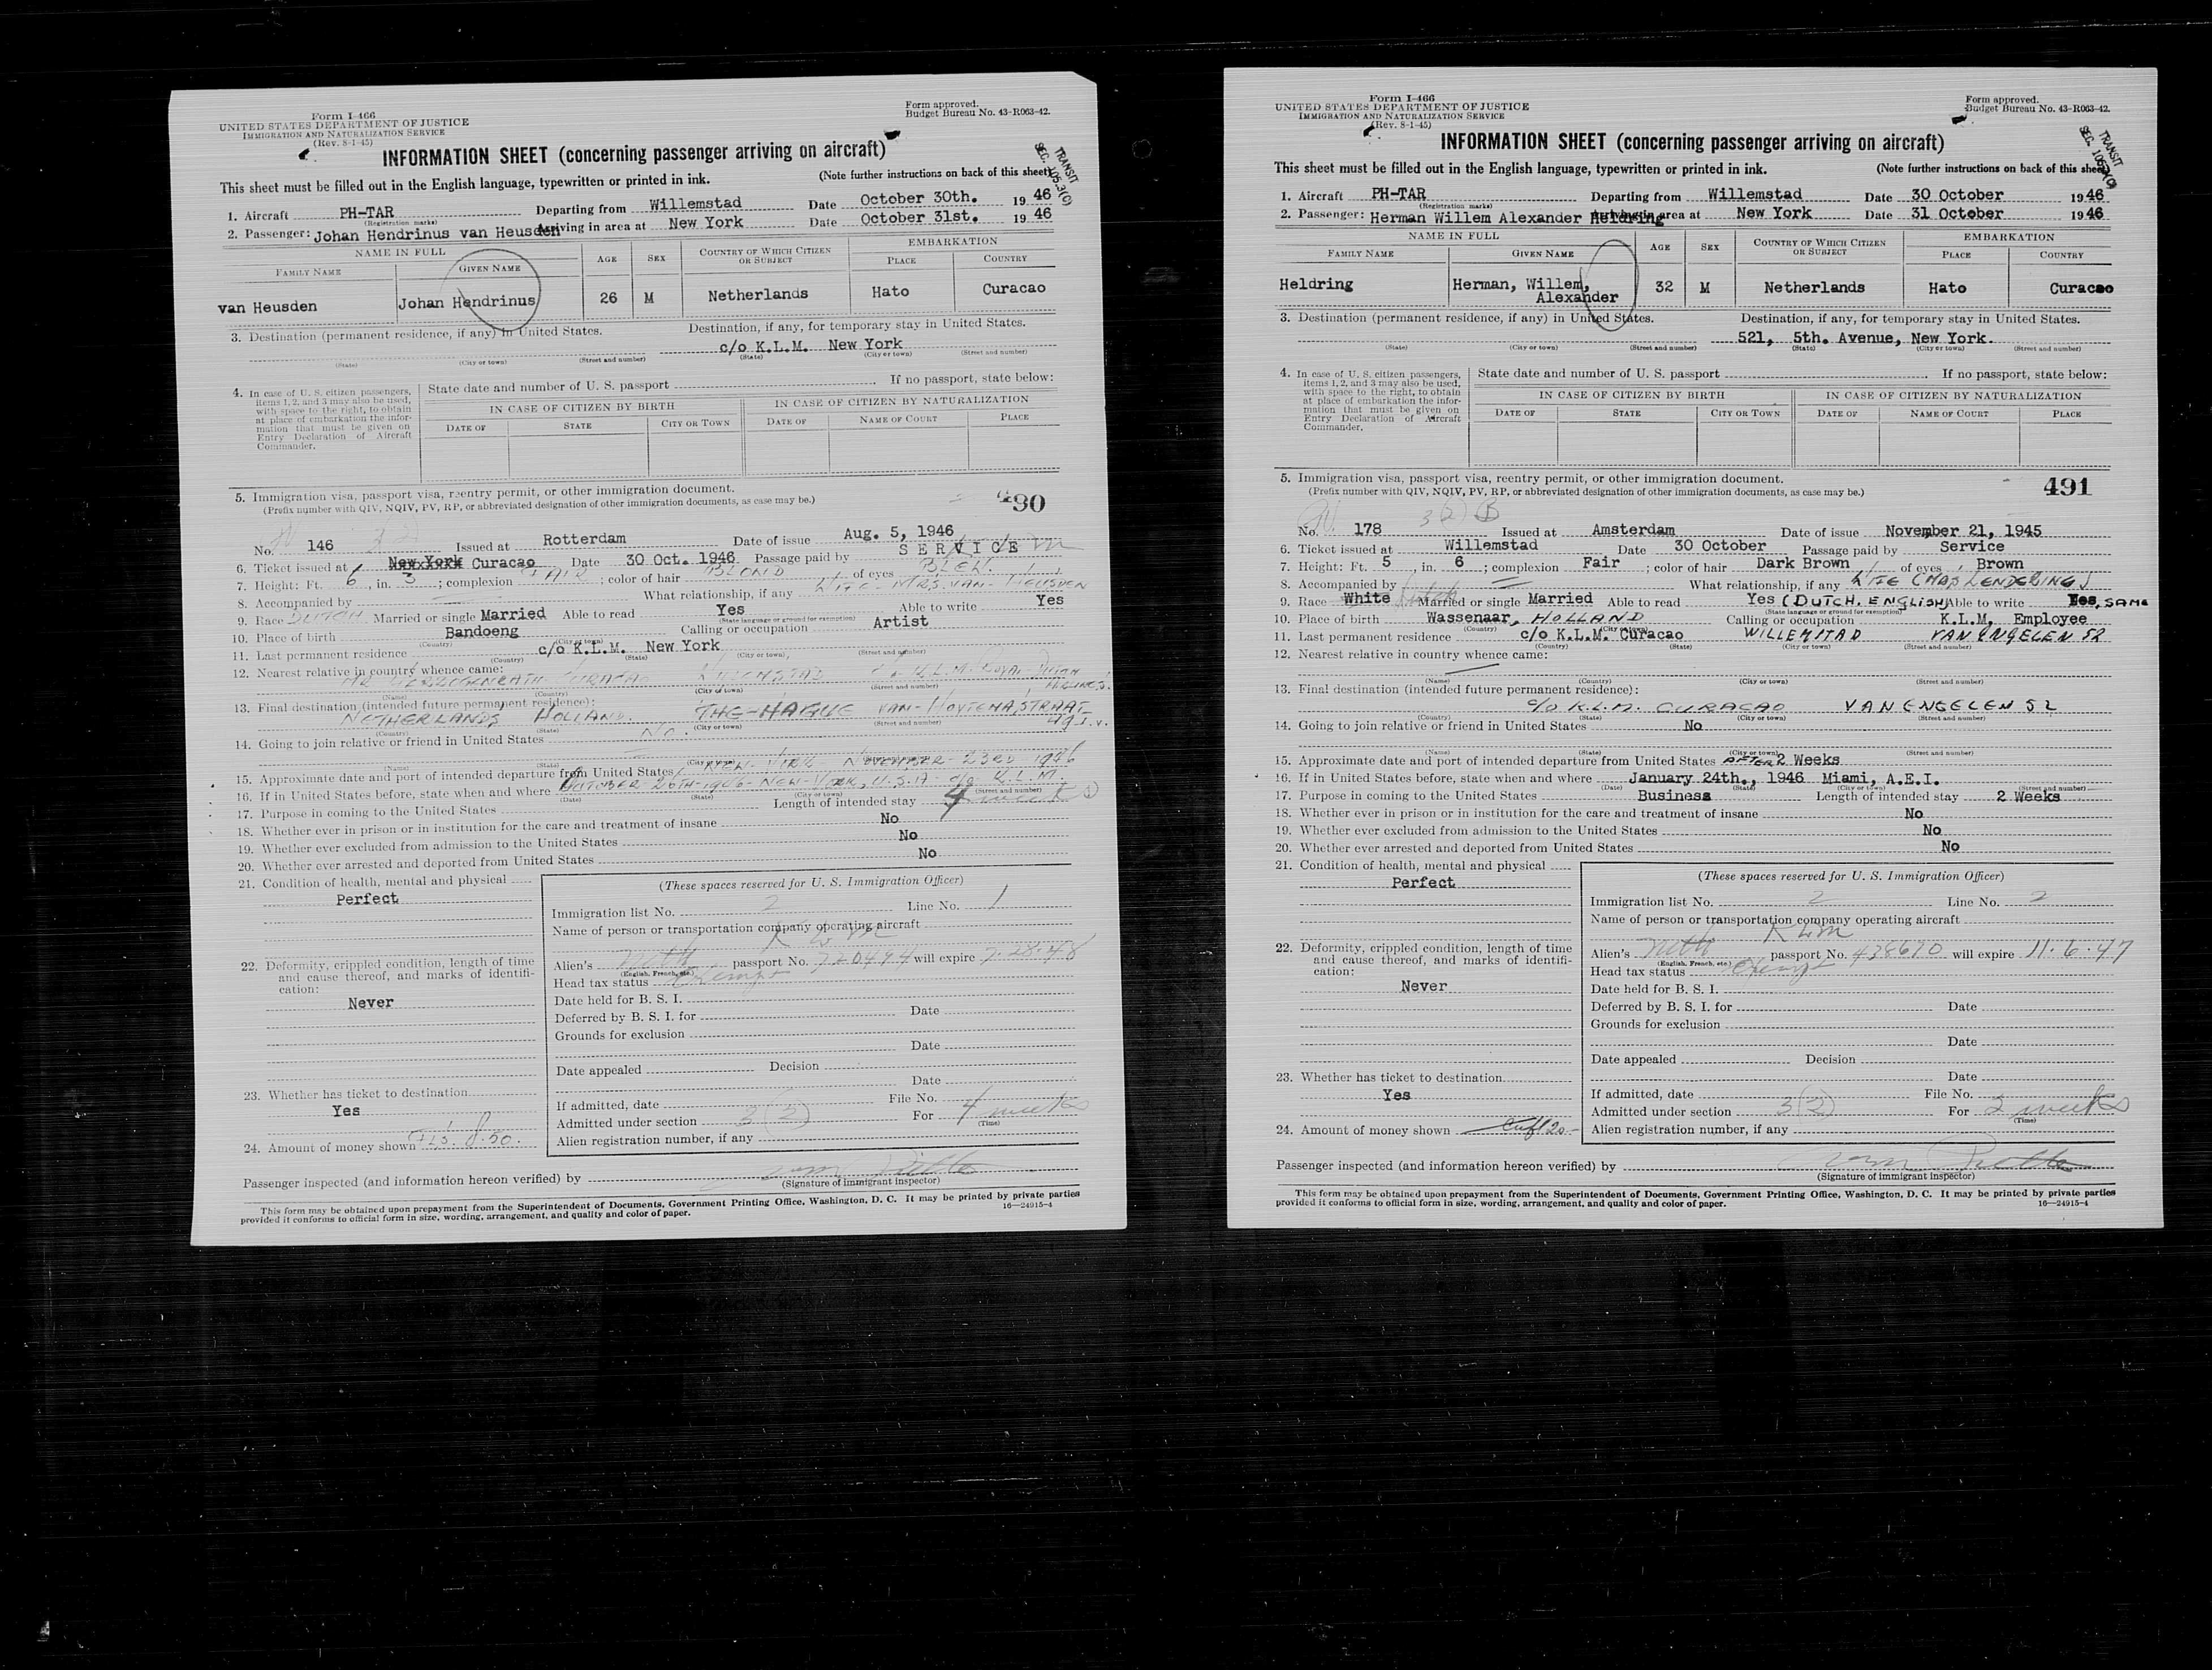 Form I-466
UNITED STATES DEPARTMENT OF JUSTICE
IMMIGRATION AND NATURALIZATION SERVICE
(Rev. 8-1-45)
Form approved.
Budget Bureau No. 43-R063-42.
INFORMATION SHEET (concerning passenger arriving on aircraft)
TRANSIT
This sheet must be filled out in the English language, typewritten or printed in ink. (Note further instructions on back of this sheet)
1. Aircraft PH-TAR Departing from Willemstad Date October 30th. 1946
(Registration marks)
2. Passenger: Johan Hendrinus van Heusden Arriving in area at New York Date October 31st. 1946
NAME IN FULL AGE SEX COUNTRY OF WHICH CITIZEN OR SUBJECT EMBARKATION
FAMILY NAME GIVEN NAME PLACE COUNTRY
van Heusden Johan Hendrinus 26 M Netherlands Hato Curacao
3. Destination (permanent residence, if any) in United States. Destination, if any, for temporary stay in United States.
c/o K.L.M. New York
(State) (City or town) (Street and number) (State) (City or town) (Street and number)
4. In case of U. S. citizen passengers, items 1, 2, and 3 may also be used, with space to the right, to obtain at place of embarkation the information that must be given on Entry Declaration of Aircraft Commander.
State date and number of U. S. passport If no passport, state below:
IN CASE OF CITIZEN BY BIRTH IN CASE OF CITIZEN BY NATURALIZATION
DATE OF STATE CITY OR TOWN DATE OF NAME OF COURT PLACE
5. Immigration visa, passport visa, reentry permit, or other immigration document.
(Prefix number with QIV, NQIV, PV, RP, or abbreviated designation of other immigration documents, as case may be.)
No. 146 Issued at Rotterdam Date of issue Aug. 5, 1946
6. Ticket issued at New York Curacao Date 30 Oct. 1946 Passage paid by SERVICE
7. Height: Ft. 6, in. 3; complexion FAIR; color of hair BLOND of eyes BLEW.
8. Accompanied by What relationship, if any WIFE - MRS. VAN - HEUSDEN
9. Race DUTCH Married or single Married Able to read Yes Able to write Yes
(State language or ground for exemption)
10. Place of birth Bandoeng Calling or occupation Artist
(Country) (City or town)
11. Last permanent residence c/o K.L.M. New York
(Country) (State) (City or town) (Street and number)
12. Nearest relative in country whence came:
(Name) (Country) (City or town) (Street and number)
13. Final destination (intended future permanent residence):
NETHERLANDS HOLLAND. THE-HAGUE VAN-HOYTEMASTRAAT
(Country) (State) (City or town) (Street and number)
14. Going to join relative or friend in United States No.
(Name) (State) (City or town) (Street and number)
15. Approximate date and port of intended departure from United States NEW-YORK - NOVEMBER - 23RD 1946
16. If in United States before, state when and where OCTOBER-26TH-1946-NEW-YORK, U.S.A. c/o K.L.M.
(Date) (State) (City or town) (Street and number)
17. Purpose in coming to the United States Length of intended stay 4 weeks
18. Whether ever in prison or in institution for the care and treatment of insane No
19. Whether ever excluded from admission to the United States No
20. Whether ever arrested and deported from United States No
21. Condition of health, mental and physical
Perfect
22. Deformity, crippled condition, length of time and cause thereof, and marks of identification:
Never
23. Whether has ticket to destination
Yes
24. Amount of money shown Fls. 8.50.
(These spaces reserved for U. S. Immigration Officer)
Immigration list No. 2 Line No. 1
Name of person or transportation company operating aircraft
K L M
Alien's Neth passport No. will expire 7.28.48
(English, French, etc.)
Head tax status Exempt
Date held for B. S. I.
Deferred by B. S. I. for Date
Grounds for exclusion
Date
Date appealed Decision
Date
If admitted, date File No.
Admitted under section 3(2) For 4 weeks
(Time)
Alien registration number, if any
Passenger inspected (and information hereon verified) by
(Signature of immigrant inspector)
This form may be obtained upon prepayment from the Superintendent of Documents, Government Printing Office, Washington, D. C. It may be printed by private parties
provided it conforms to official form in size, wording, arrangement, and quality and color of paper. 16—24915-4
Form I-466
UNITED STATES DEPARTMENT OF JUSTICE
IMMIGRATION AND NATURALIZATION SERVICE
(Rev. 8-1-45)
Form approved.
Budget Bureau No. 43-R063-42.
INFORMATION SHEET (concerning passenger arriving on aircraft)
TRANSIT
This sheet must be filled out in the English language, typewritten or printed in ink. (Note further instructions on back of this sheet)
1. Aircraft PH-TAR Departing from Willemstad Date 30 October 1946
(Registration marks)
2. Passenger: Herman Willem Alexander Heldring Arriving in area at New York Date 31 October 1946
NAME IN FULL AGE SEX COUNTRY OF WHICH CITIZEN OR SUBJECT EMBARKATION
FAMILY NAME GIVEN NAME PLACE COUNTRY
Heldring Herman, Willem, Alexander 32 M Netherlands Hato Curacao
3. Destination (permanent residence, if any) in United States. Destination, if any, for temporary stay in United States.
521, 5th. Avenue, New York.
(State) (City or town) (Street and number) (State) (City or town) (Street and number)
4. In case of U. S. citizen passengers, items 1, 2, and 3 may also be used, with space to the right, to obtain at place of embarkation the information that must be given on Entry Declaration of Aircraft Commander.
State date and number of U. S. passport If no passport, state below:
IN CASE OF CITIZEN BY BIRTH IN CASE OF CITIZEN BY NATURALIZATION
DATE OF STATE CITY OR TOWN DATE OF NAME OF COURT PLACE
5. Immigration visa, passport visa, reentry permit, or other immigration document. 491
(Prefix number with QIV, NQIV, PV, RP, or abbreviated designation of other immigration documents, as case may be.)
No. 178 Issued at Amsterdam Date of issue November 21, 1945
6. Ticket issued at Willemstad Date 30 October Passage paid by Service
7. Height: Ft. 5, in. 6; complexion Fair; color of hair Dark Brown of eyes Brown
8. Accompanied by What relationship, if any WIFE
9. Race White Dutch Married or single Married Able to read Yes (DUTCH, ENGLISH) Able to write Yes, SAME
(State language or ground for exemption)
10. Place of birth Wassenaar, HOLLAND Calling or occupation K.L.M. Employee
(Country) (City or town)
11. Last permanent residence c/o K.L.M. Curacao WILLEMSTAD VAN ENGELEN 52
(Country) (State) (City or town) (Street and number)
12. Nearest relative in country whence came:
(Name) (Country) (City or town) (Street and number)
13. Final destination (intended future permanent residence):
c/o K.L.M. CURACAO VAN ENGELEN 52
(Country) (State) (City or town) (Street and number)
14. Going to join relative or friend in United States No
(Name) (State) (City or town) (Street and number)
15. Approximate date and port of intended departure from United States AFTER 2 Weeks
16. If in United States before, state when and where January 24th., 1946 Miami, A.E.I.
(Date) (State) (City or town) (Street and number)
17. Purpose in coming to the United States Business Length of intended stay 2 Weeks
18. Whether ever in prison or in institution for the care and treatment of insane No
19. Whether ever excluded from admission to the United States No
20. Whether ever arrested and deported from United States No
21. Condition of health, mental and physical
Perfect
22. Deformity, crippled condition, length of time and cause thereof, and marks of identification:
Never
23. Whether has ticket to destination
Yes
24. Amount of money shown
(These spaces reserved for U. S. Immigration Officer)
Immigration list No. 2 Line No. 2
Name of person or transportation company operating aircraft
KLM
Alien's Neth passport No. 438670 will expire 11.6.47
(English, French, etc.)
Head tax status Exempt
Date held for B. S. I.
Deferred by B. S. I. for Date
Grounds for exclusion
Date
Date appealed Decision
Date
If admitted, date File No.
Admitted under section 3(2) For 2 weeks
(Time)
Alien registration number, if any
Passenger inspected (and information hereon verified) by
(Signature of immigrant inspector)
This form may be obtained upon prepayment from the Superintendent of Documents, Government Printing Office, Washington, D. C. It may be printed by private parties
provided it conforms to official form in size, wording, arrangement, and quality and color of paper. 16—24915-4